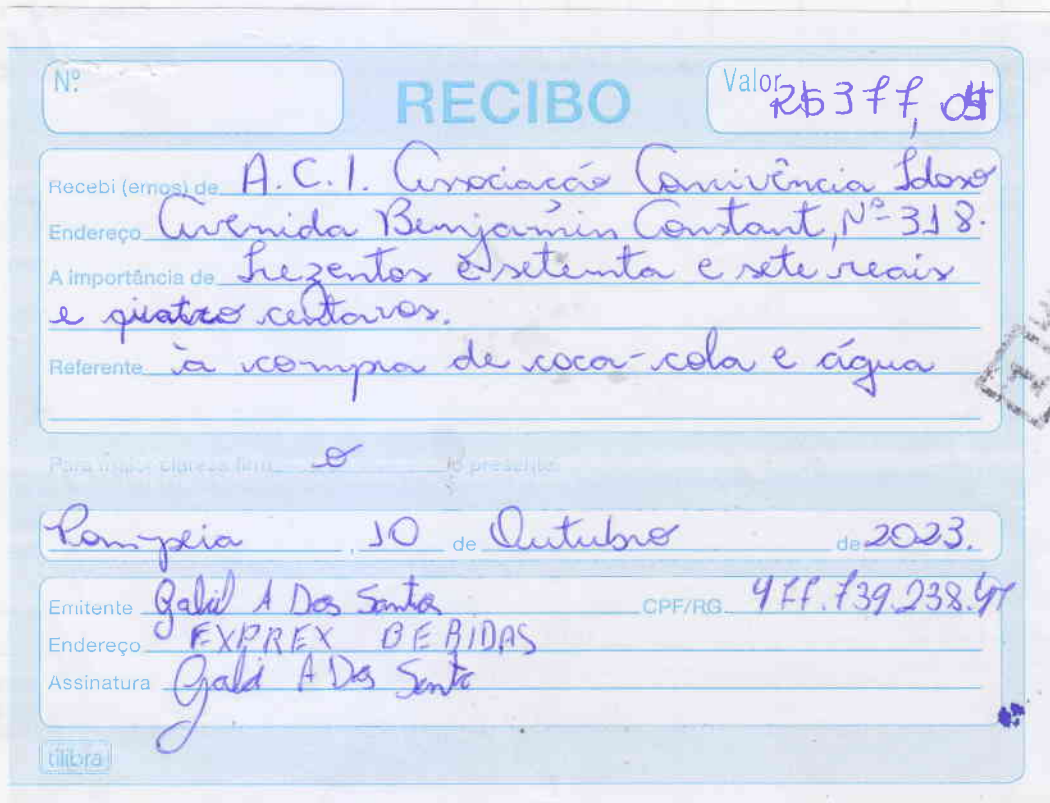 Nº
RECIBO
Valor R$ 377,04
Recebi (emos) de A.C.I. Associacão Convivência Idoso
Endereço Avenida Benjamin Constant, Nº 318.
A importância de trezentos e setenta e sete reais
e quatro centavos.
Referente à compra de coca-cola e água
Para maior clareza firmo o presente
Pompeia, 10 de Outubro de 2023.
Emitente A Dos Santos CPF/RG
Endereço EXPREX BEBIDAS
Assinatura A Dos
tilibra